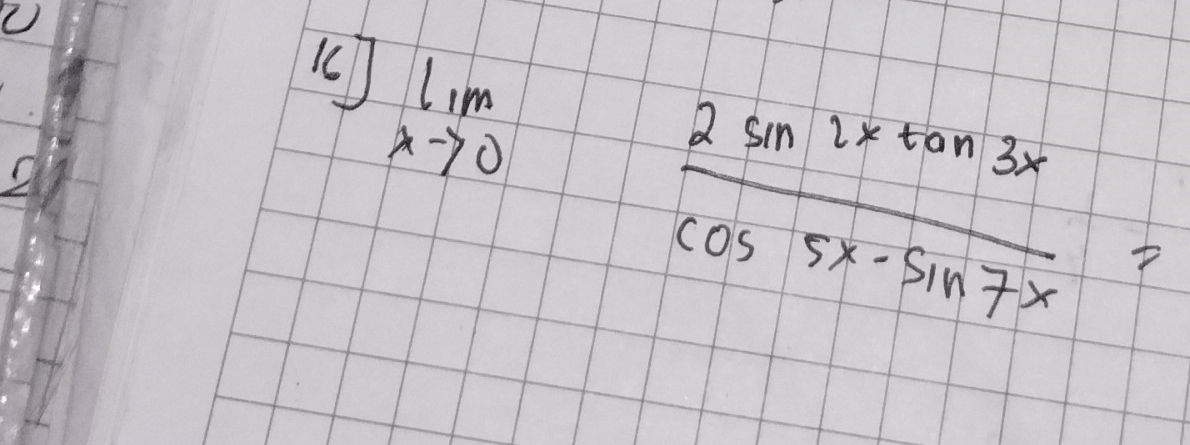 16] lim 2 sin 2x tan 3x
x→0 cos 5x - sin 7x =